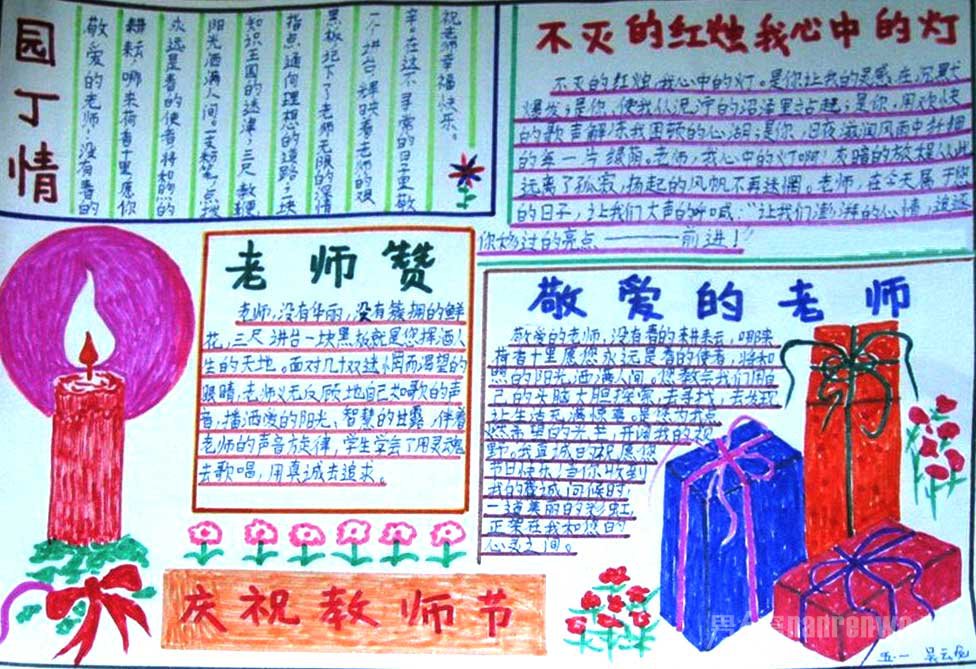 园丁情
敬爱的老师,没有春的
耕耘,哪来荷香十里,愿你
永远是春的使者将和煦的
阳光洒满人间。一支粉笔,点拨
知识王国的迷津;三尺教鞭,
指点通向理想的道路;一块
黑板,记下了老师无限的深情
一个讲台,辉映着老师的艰
辛。在这不寻常的日子里,敬
祝老师幸福快乐。
不灭的红烛我心中的灯
不灭的红烛,我心中的灯。是你让我的灵感在沉默
爆发;是你,使我从泥泞的沼泽里站起;是你,用欢快
的歌声解冻我困顿的心湖;是你,日夜滋润风雨中
的每一片绿荫。老师,我心中的灯啊!灰暗的旅程从此
远离了孤寂,扬起的风帆不再迷惘。老师,在今天属于您
的日子,让我们大声的呐喊:“让我们澎湃的心情,追逐
你妙过的亮点——前进!”
老师赞
老师,没有华丽,没有簇拥的鲜
花,三尺讲台一块黑板就是您挥洒人
生的天地。面对几十双迷惘而渴望的
眼睛,老师义无反顾地自己如歌的声
音,播洒爱的阳光,智慧的甘露,伴着
老师的声音旋律,学生学会了用灵魂
去歌唱,用真诚去追求。
敬爱的老师
敬爱的老师,没有春的耕耘,哪来
荷香十里愿您永远是春的使者,将和
煦的阳光洒满人间。您教会我们用自
己的头脑大胆探索,去寻找,去发现
让生活充满惊喜。是您为我点
燃希望的光芒,开阔我的视
野。我真诚日祝愿您
节日快乐!当你收到
我的虔诚问候时,
一道美丽的彩虹,
正架在我和您的
心灵之间。
庆祝教师节
五·一